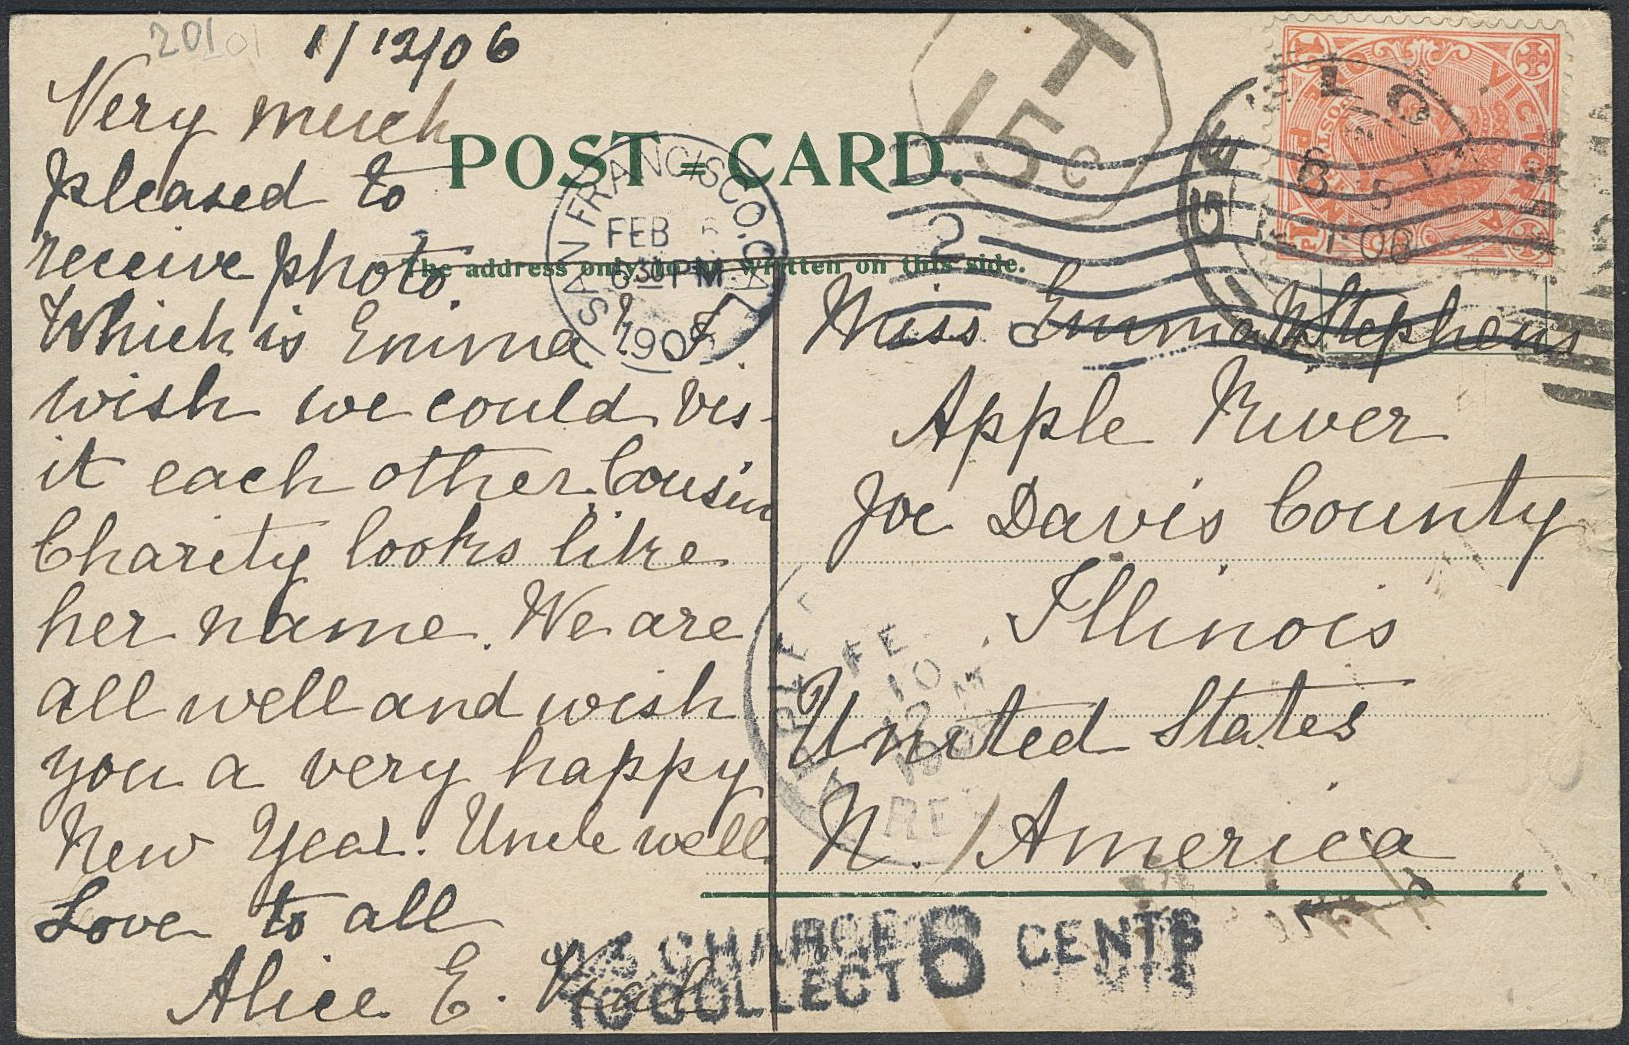 201
1/12/06
Very much
pleased to
receive photo
Which is Emma? I
wish we could vis-
it each other. Cousin
Charity looks like
her name. We are
all well and wish
you a very happy
New Year. Uncle well
Love to all
Alice E.
POST CARD.
The address only to be written on this side.
SAN FRANCISCO, CAL.
FEB
630 PM
190
T
15c
GEELONG
VICTORIA
POSTAGE
ONE PENNY
Miss Emma Stephens
Apple River
Joe Davis County
Illinois
United States
N. America
APPLE
FE
10
12 M
REC
U.S. CHARGE
TO COLLECT 6 CENTS